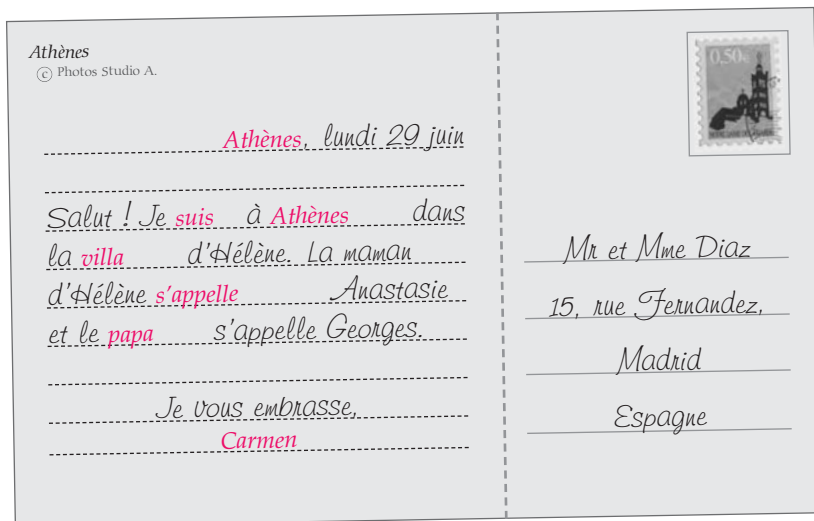 Athènes
© Photos Studio A.
Athènes, lundi 29 juin
Salut ! Je suis à Athènes dans
la villa d'Hélène. La maman
d'Hélène s'appelle Anastasie
et le papa s'appelle Georges.
Je vous embrasse,
Carmen
0,50€
Mr et Mme Diaz
15, rue Fernandez,
Madrid
Espagne